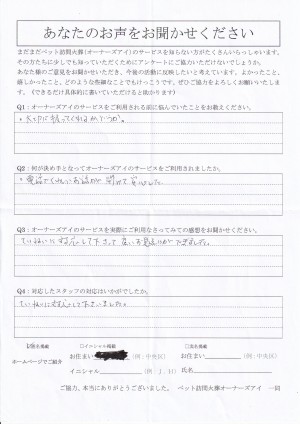 あなたのお声をお聞かせください
まだまだペット訪問火葬(オーナーズアイ)のサービスを知らない方がたくさんいらっしゃいます。
その方たちに少しでも知っていただくためにアンケートにご協力いただけないでしょうか。
あなた様のご意見をお聞かせいただき、今後の活動に反映したいと考えています。よかったこと、
嬉しかったこと、どのような些細なことでもけっこうです。ぜひご協力をよろしくお願いいたします。
(できるだけ具体的に書いていただけると助かります)
Q1：オーナーズアイのサービスをご利用される前に悩んでいたことをお教えください。
Q2：何が決め手となってオーナーズアイのサービスをご利用されましたか。
・電話でくわしいお話が聞けて安心した。
Q3：オーナーズアイのサービスを実際にご利用なさってみての感想をお聞かせください。
ていねいに対応して下さって良いお見送りができました。
Q4：対応したスタッフの対応はいかがでしたか。
ていねいに対応して下さいました。
□イニシャル掲載 □匿名掲載
お住まい (例：中央区) お住まい (例：中央区)
ホームページでご紹介
イニシャル (例：J．H) 氏名
ご協力、本当にありがとうございました。 ペット訪問火葬オーナーズアイ 一同